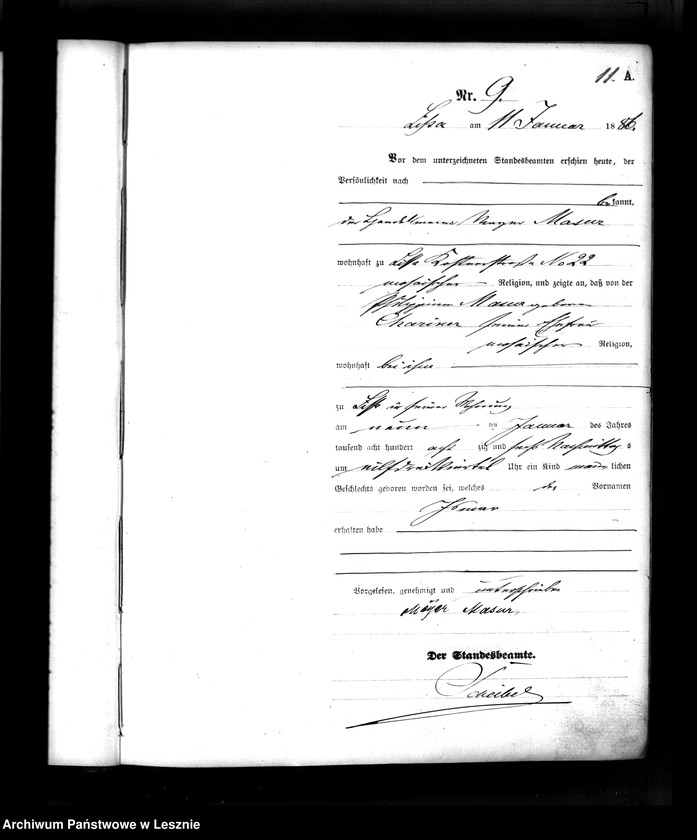 11. A.
Nr. 9.
Lissa am 11 Januar 1886.
Vor dem unterzeichneten Standesbeamten erschien heute, der
Persönlichkeit nach
bekannt,
der Handelsmann Mayer Masur
wohnhaft zu Lissa Kostenerstraße No 22
mosaischer Religion, und zeigte an, daß von der
Masur geborene
Chariner seiner Ehefrau
mosaischer Religion,
wohnhaft bei ihm
zu Lissa in seiner Wohnung
am neun ten Januar des Jahres
tausend acht hundert acht zig und sechs Nachmittags
um eilfdreiviertel Uhr ein Kind männlichen
Geschlechts geboren worden sei, welches den Vornamen
Ismar
erhalten habe
Vorgelesen, genehmigt und unterschrieben
Mayer Masur.
Der Standesbeamte.
Scheibel
Archiwum Państwowe w Lesznie